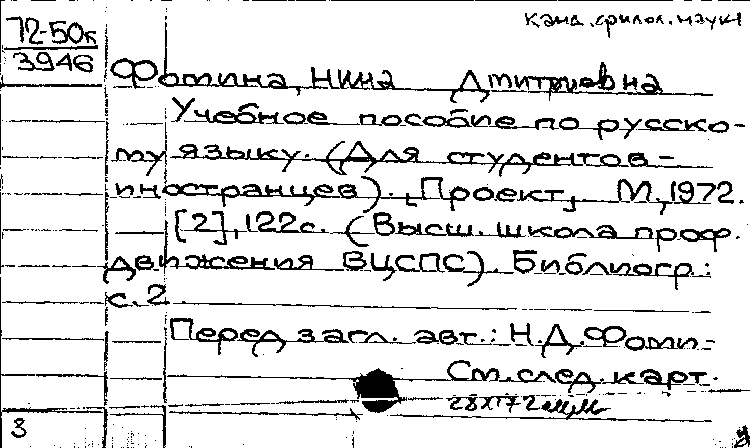 канд. филол. наук
72-50к
3946
Фомина, Нина Дмитриевна
Учебное пособие по русско-
му языку. (Для студентов-
иностранцев). [Проект]. М., 1972.
[2], 122с. (Высш. школа проф.
движения ВЦСПС). Библиогр.:
с. 2.
Перед загл. авт.: Н.Д. Фоми-
См. след. карт.
28х172мм
3